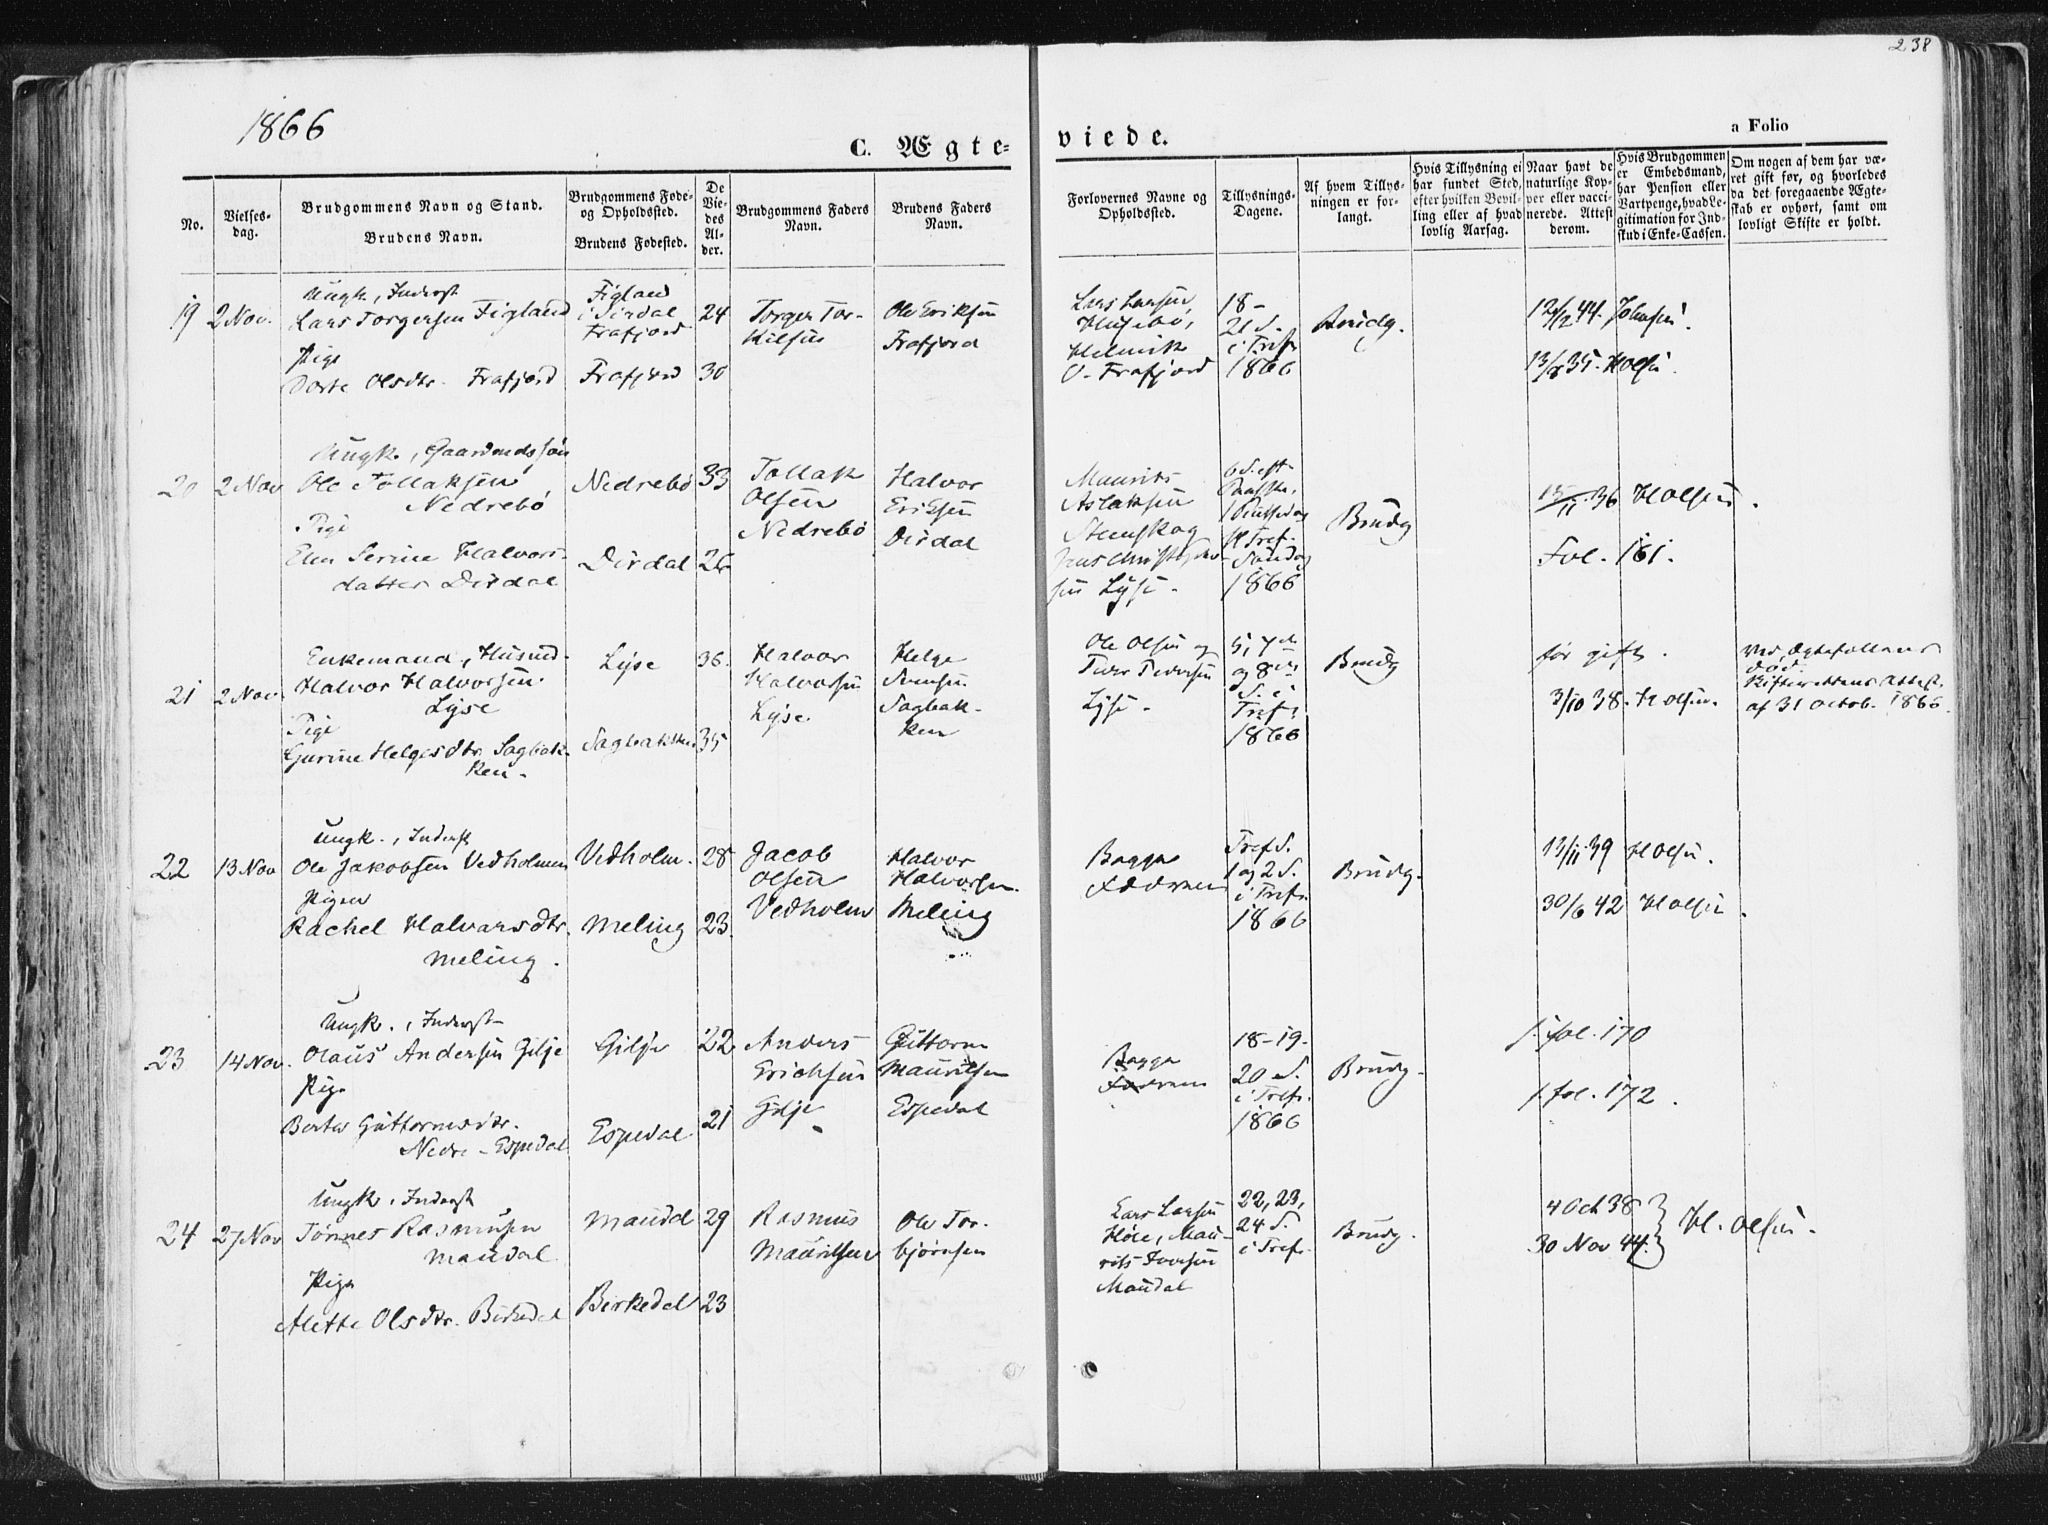 238
1866
C. Ægte-
viede.
a Folio
No.
Vielses-
dag.
Brudgommens Navn og Stand.
Brudens Navn.
Brudgommens Føde-
og Opholdssted.
Brudens Fødested.
De
Vie-
des
Al-
der.
Brudgommens Faders
Navn.
Brudens Faders
Navn.
Forlovernes Navne og
Opholdssted.
Tillysnings-
Dagene.
Af hvem Tillys-
ningen er for-
langt.
Hvis Tillysning ei
har fundet Sted,
efter hvilken Bevil-
ling eller af hvad
lovlig Aarsag.
Naar havt de
naturlige Kop-
per eller vacci-
nerede. Attest
derom.
Hvis Brudgommen
er Embedsmand,
har Pension eller
Vartpenge, hvad Le-
gitimation for Ind-
skud i Enke-Cassen.
Om nogen af dem har væ-
ret gift før, og hvorledes
da det foregaaende Ægte-
skab er ophørt, samt om
lovligt Skifte er holdt.
19
2 Nov.
Ungk., Inderst
Lars Torgersen Figland
Pige
Dorte Olsdtr. Frafjord
Figland
i Sirdal
Frafjord
Frafjord
24
30
Torger Tor-
kilsen
Ole Eriksen
Frafjord
Lars Larsen
Husebø,
Helmik
O. Frafjord
18-
21 S.
i Tref.
1866
Brudg.
12/2 44. Johnsen.
13/8 35. Holsen.
20
2 Nov
Ungk., Gaardmdssøn
Ole Tollaksen
Nedrebø
Pige
Elen Serine Halvors-
datter Dirdal
Nedrebø
Dirdal
33
26
Tollak
Olsen
Nedrebø
Halvor
Eriksen
Dirdal
Maurits
Aslaksen
Stenskog
Lyse.
6 S. eft.
1 Pintsedag
Tref.
Søndag
1866
Brudg
15/11 36 Holsen.
Fol. 161.
21
2 Nov
Enkemand, Husmd.
Halvor Halvorsen
Lyse
Pige
Gurine Helgesdtr. Sagbak-
ken.
Lyse
Sagbakken
36.
35
Halvor
Halvorsen
Lyse.
Helge
Svensen
Sagbak-
ken
Ole Olsen og
Peder Pedersen
Lyse.
5, 7de
og 8de
S. i
Tref.
1866
Brudg
før gift.
3/10 38. Holsen.
Ved Ægtefællens
død.
Skifterettens Attest
af 31 Octob. 1866.
22
13 Nov
Ungk., Inderst
Ole Jakobsen Vedholmen
Pigen
Rachel Halvorsdtr.
Meling.
Vedholm.
Meling
28
23
Jacob
Olsen
Vedholm
Halvor
Halvorsen.
Meling
Begge
Fædrene
Tref. S.
1 og 2 S.
i Tref.
1866
Brudg.
13/11 39 Holsen.
30/6 42 Holsen.
23
14 Nov.
Ungk., Inderst
Olaus Andersen Gilje
Pige
Berte Guttormsdtr.
Nedre-Espedal
Gilje
Espedal
22
21
Anders
Erichsen
Gilje
Guttorm
Mauritsen
Espedal
Begge
Fædrene
18-19-
20 S.
i Tref.
1866
Brudg.
fol. 170
fol. 172.
24
27 Nov
Ungk., Inderst
Tønnes Rasmusen
Maudal
Pige
Mette Olsdtr. Birkedal
Maudal
Birkedal
29
23
Rasmus
Mauritsen
Ole Tor-
bjørnsen
Lars Larsen
Høle, Mau-
rits Iversen
Maudal
22, 23,
24 S.
i Tref.
Brudg.
4 Oct 38
30 Nov 44.
H. Olsen.